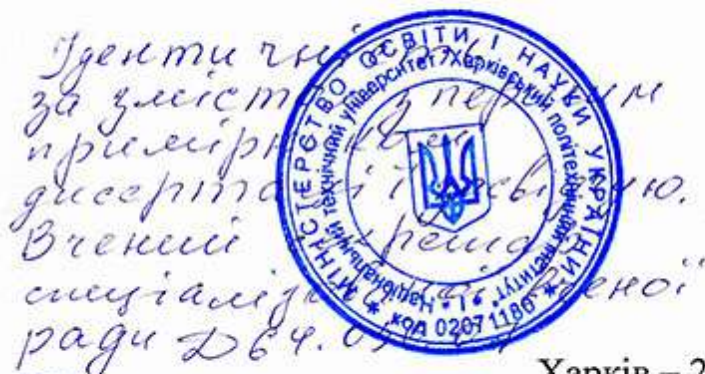 Ідентичність
за змістом із першим
примірником
дисертації засвідчую.
Вчений секретар
спеціалізованої вченої
ради Д64.
МІНІСТЕРСТВО ОСВІТИ І НАУКИ УКРАЇНИ
* код 02071180 *
Національний технічний університет "Харківський політехнічний інститут"
* 1 *
Харків – 2